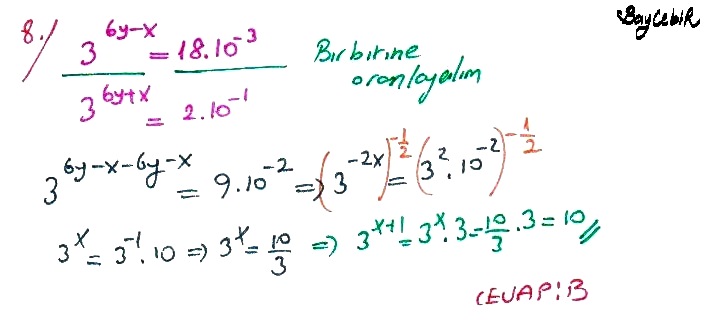 BayCebiR
8./ 3^{6y-x} = 18.10^{-3} Birbirine
3^{6y+x} = 2.10^{-1} oranlayalım
3^{6y-x-6y-x} = 9.10^{-2} => (3^{-2x})^{-1/2} = (3^2.10^{-2})^{-1/2}
3^x = 3^{-1}.10 => 3^x = 10/3 => 3^{x+1} = 3^x.3 = 10/3.3 = 10//
CEVAP:B